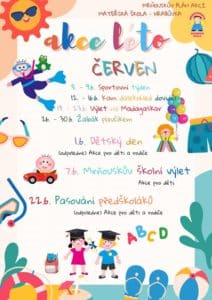 MIMOŇSKÝ PLÁN AKCÍ
MATEŘSKÁ ŠKOLA - HRABŮVKA
akce léto
ČERVEN
5. - 9.6. Sportovní týden
12. - 16.6. Kam
19. - 23.6. Výlet na Madagaskar
26. - 30.6. Žabák
1.6. Dětský den
(odpoledne) Akce pro děti a rodiče
7.6. školní výlet
Akce pro děti
22.6. Pasování předškoláků
(odpoledne) Akce pro děti a rodiče
ABCD